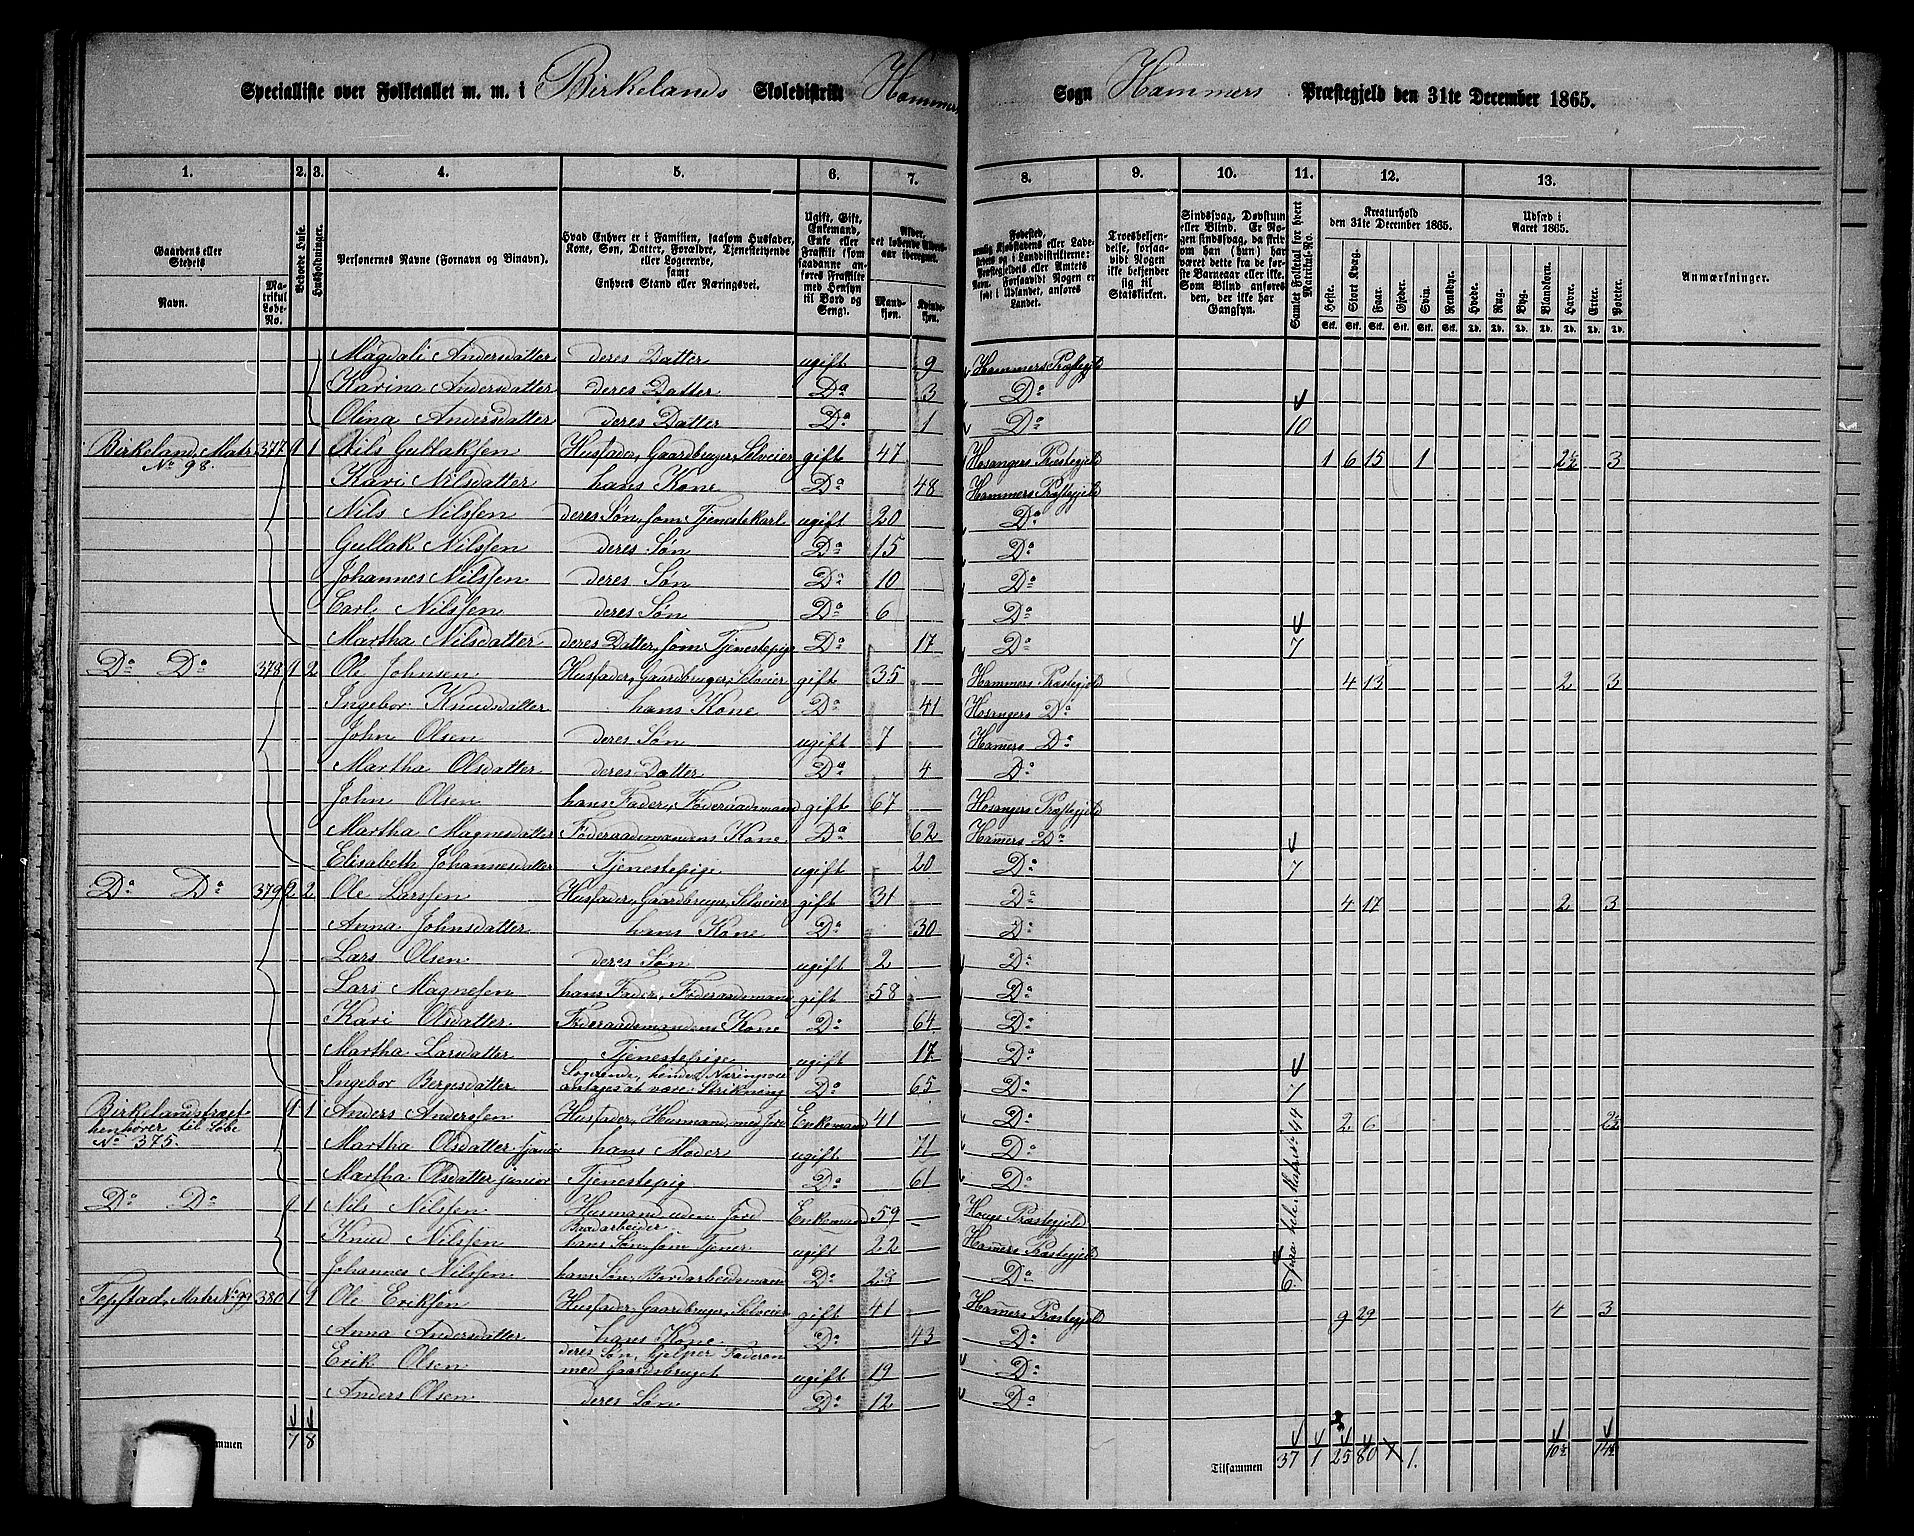 Specialliste over Folketallet m. m. i Birkelands Skoledistrikt Hammers Sogn Hammers Præstegjeld den 31te December 1865.
1. 2. 3. 4. 5. 6. 7. 8. 9. 10. 11. 12. 13.
Gaardens eller Stedets Navn. Matrikul Løbe-No. Beboede Huse. Husholdninger. Personernes Navne (Fornavn og Binavn). Hvad Enhver er i Familien, saasom Husfader, Kone, Søn, Datter, Forældre, Tjenestetyende eller Logerende, samt Enhvers Stand eller Næringsvei. Ugift, Gift, Enkemand, Enke eller Fraskilt (som saadanne anføres Fraskilte med Hensyn til Bord og Seng). Alder, det løbende Aldersaar iberegnet. Mandkjøn. Kvindekjøn.
Fødested, Troesbekjendelse, forsaavidt Nogen ikke bekjender sig til Statskirken. Sindssvag, Døvstum eller Blind. Er Nogen sindssvag, da skriv om han (hun) har været dette fra de første Barneaar eller ikke. Som Blind anføres den, der ikke har Gangsyn. Samlet Folketal for hvert Matrikul-No. Kreaturhold den 31te December 1865. Udsæd i Aaret 1865. Anmærkninger.
Heste. Stort Kvæg. Faar. Gjeder. Svin. Rensdyr. Hvede. Rug. Byg. Blandkorn. Havre. Erter. Poteter.
Magdali Andersdatter deres Datter ugift 9 Hammers Præstegjeld
Karina Andersdatter deres Datter Do 3 Do
Olina Andersdatter deres Datter Do 1 Do 10
Birkeland, Matr. No 98. 377 1 1 Nils Gullaksen Husfader, Gaardbruger, Selveier gift 47 Hosangers Præstegjeld 1 6 15 1 2½ 3
Kari Nilsdatter hans Kone Do 48 Hammers Præstegjeld
Nils Nilssen deres Søn, som Tjenestekarl ugift 20 Do
Gullak Nilssen deres Søn Do 15 Do
Johannes Nilssen deres Søn Do 10 Do
Carl Nilssen deres Søn Do 6 Do
Martha Nilsdatter deres Datter, som Tjenestepige Do 17 Do 7
Do Do 378 1 2 Ole Johnsen Husfader, Gaardbruger, Selveier gift 35 Hammers Præstegjeld 4 13 2 3
Ingebor Knudsdatter hans Kone Do 41 Hosangers Do
John Olsen deres Søn ugift 7 Hamers Do
Martha Olsdatter deres Datter Do 4 Do
John Olsen hans Fader, Føderaadsmand gift 67 Hosangers Præstegjeld
Martha Magnesdatter Føderaadsmandens Kone Do 62 Hamers Do
Elisabeth Johannesdatter Tjenestepige ugift 20 Do 7
Do Do 379 2 2 Ole Larssen Husfader, Gaardbruger, Selveier gift 31 Do 4 17 2 3
Anna Johnsdatter hans Kone Do 30 Do
Lars Olsen deres Søn ugift 2 Do
Lars Magnesen hans Fader, Føderaadsmand gift 58 Do
Kari Olsdatter Føderaadsmandens Kone Do 64 Do
Martha Larsdatter Tjenestepige ugift 17 Do
Ingebor Bergesdatter Logerende, hendes Næringsvei antages at være: Strikning Do 65 Do 7
Birkelandstræet henhører til Løbe No 375. 1 1 Anders Anderssen Husfader, Husmand med Jord Enkemand 41 Do 2 6 2½
Martha Olsdatter hans Moder ugift 71 Do
Martha Olsdatter junior Tjenestepig Do 61 Do
Do Do 1 1 Nils Nilssen Husmand uden Jord Enkemand 59 Hougs Præstegjeld
Knud Nilssen hans Søn, som Tjener ugift 22 Hamers Præstegjeld
Johannes Nilssen hans Søn, Bordarbeidsmand Do Do
Tepstad, Matr No 99 380 1 1 Ole Eriksen Husfader, Gaardbruger, Selveier gift 41 Hamers Præstegjeld 9 29 4 3
Anna Andersdatter hans Kone Do 43 Do
Erik Olsen deres Søn, hjelper Faderen med Gaardsbruget ugift 19 Do
Anders Olsen deres Søn Do 12 Do
7 8 Tilsammen 37 1 25 80 1 10½ 14½